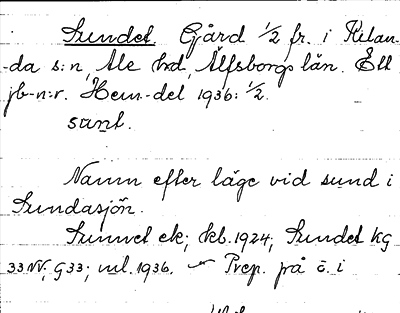 Sundet. Gård 1/2 fr. i Kilan-
-da s:n, Ale hd, Älfsborgs län. Ett
jb-n:r. Hem.-del 1936: 1/2.
sant.
Namn efter läge vid sund i
Sundasjön.
Sunnet ek; deb. 1924, Sundet kg
33NV, G33; uul. 1936. — Prep. på č. i